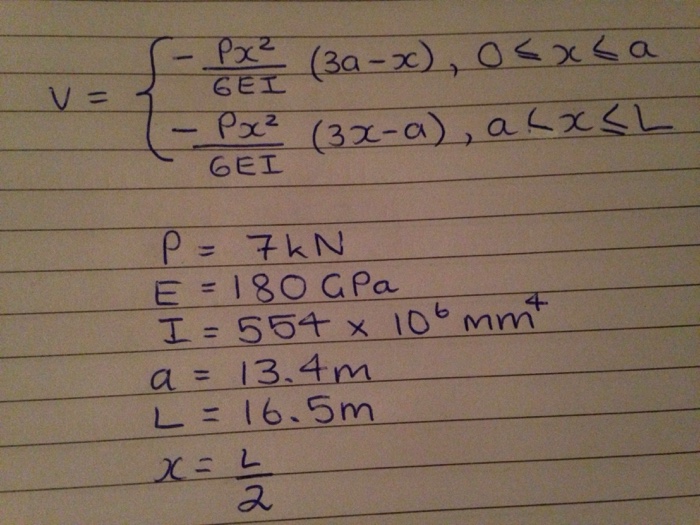 V = { - Px²/6EI (3a-x), 0 ≤ x ≤ a
- Px²/6EI (3x-a), a < x ≤ L
P = 7kN
E = 180 GPa
I = 554 x 10⁶ mm⁴
a = 13.4m
L = 16.5m
x = L/2